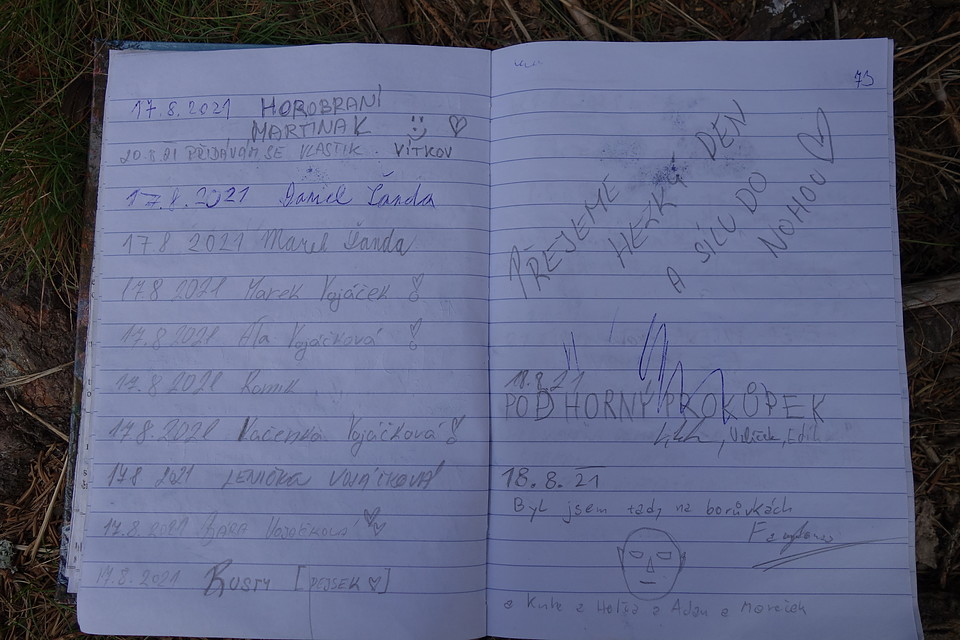 17.8.2021 HOROBRANÍ
MARTINAK
PŘIDÁVÁM SE VLASTIK. VÍTKOV
17.8.2021 Daniel Šanda
17 8 2021 Marek Šanda
17 8 2021 Marek Vojáček
17.8 2021 Vojáčková
17. 8 2021
17.8 2021 Vojáčková
17 8 2021 LENIČKA VOJÁČKOVÁ
17.8.2021 BÁRA
17.8.2021 RUSTY [PEJSEK ♡]
73
PŘEJEME
HEZKÝ DEN
A SÍLU DO
NOHOU ♡
18.8.21
POĎ HORNÝ PROKŮPEK
18. 8. 21
Byl jsem tady na borůvkách
a Adam a